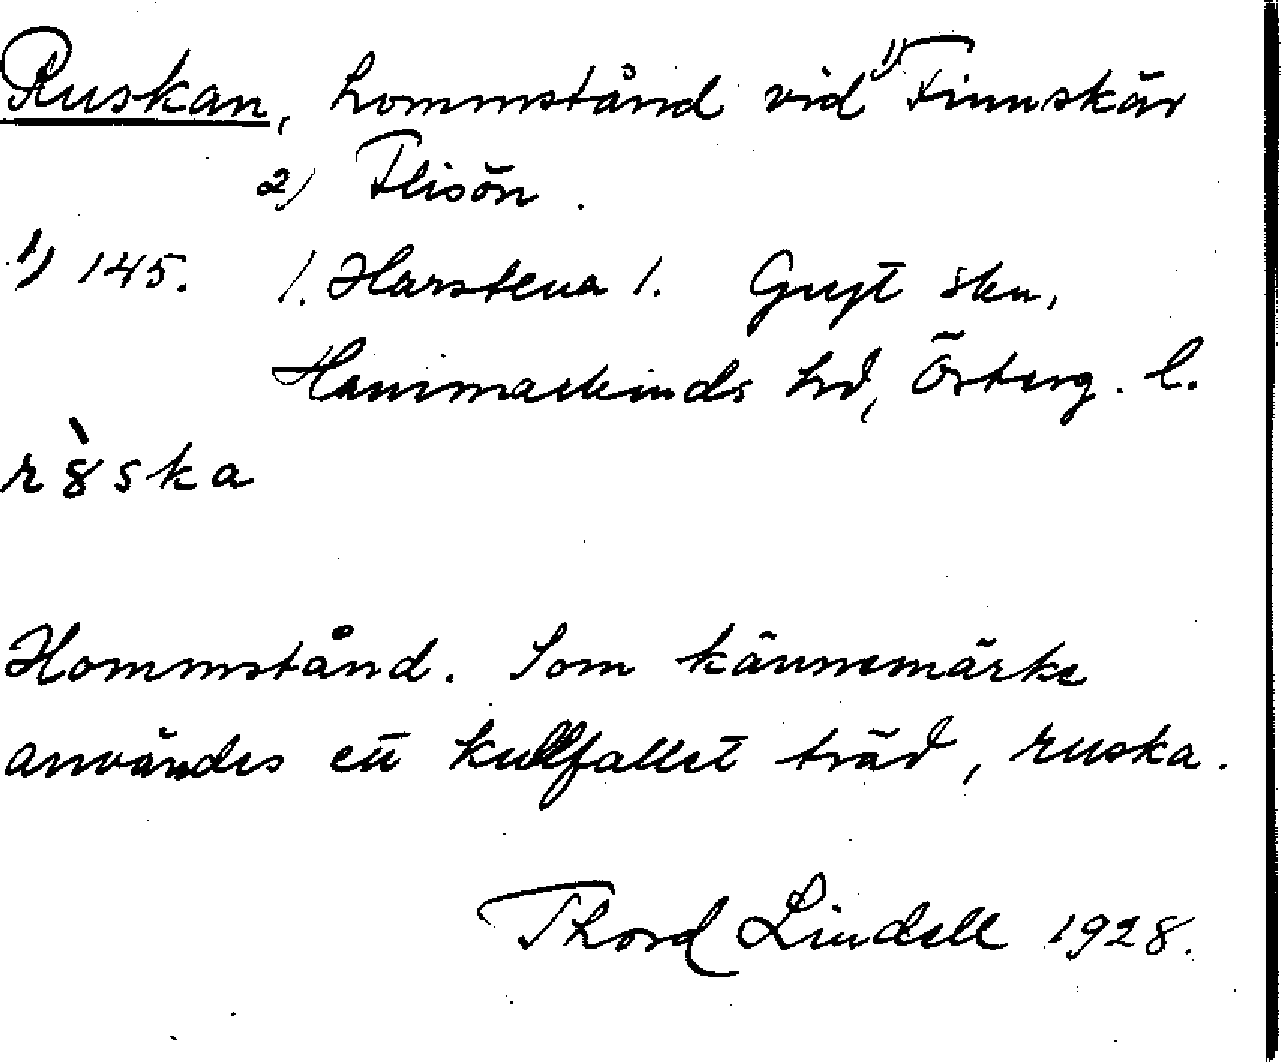 Ruskan, hommstånd vid 1) Finnskär
2) Flisön.
1) 145. 1. Harstena 1. Gryt skn,
Hammarkinds hd, Österg. l.
r8̀ska
Hommstånd. Som kännemärke
användes ett kullfallet träd, ruska.
Thord Lindell 1928.